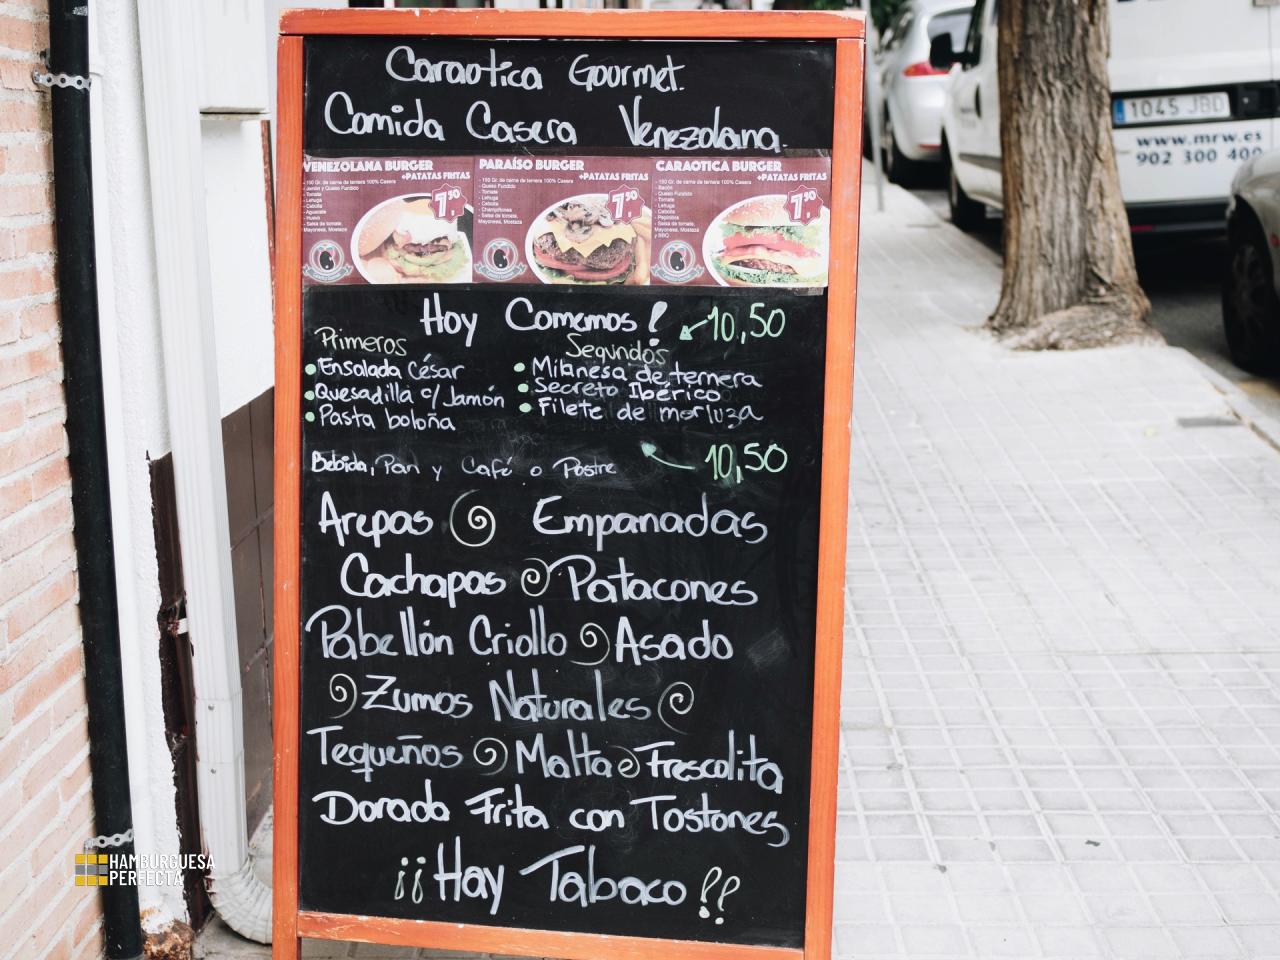 Caraotica Gourmet.
Comida Casera Venezolana.
VENEZOLANA BURGER
+PATATAS FRITAS
- 150 Gr. de carne de ternera 100% Casera
- Jamón y Queso Fundido
- Tomate
- Lehuga
- Cebolla
- Aguacate
- Huevo
- Salsa de tomate,
Mayonesa, Mostaza
7'50
PARAÍSO BURGER
+PATATAS FRITAS
- 150 Gr. de carne de ternera 100% Casera
- Queso Fundido
- Tomate
- Lehuga
- Cebolla
- Champiñones
- Salsa de tomate,
Mayonesa, Mostaza
7'50
CARAOTICA BURGER
+PATATAS FRITAS
- 150 Gr. de carne de ternera 100% Casera
- Bacón
- Queso Fundido
- Tomate
- Lehuga
- Cebolla
- Pepinillos
- Salsa de tomate,
Mayonesa, Mostaza
y BBQ
7'50
Hoy Comemos! 10,50
Primeros
• Ensalada César
• Quesadilla c/ Jamón
• Pasta boloña
Segundos
• Milanesa de ternera
• Secreto Ibérico
• Filete de morluza
Bebida, Pan y Café o Postre 10,50
Arepas Empanadas
Cachapas Patacones
Pabellón Criollo Asado
Zumos Naturales
Tequeños Malta Frescolita
Dorada Frita con Tostones
¡¡Hay Tabaco!!
1045 JBD
www.mrw.es
902 300 400
HAMBURGUESA
PERFECTA